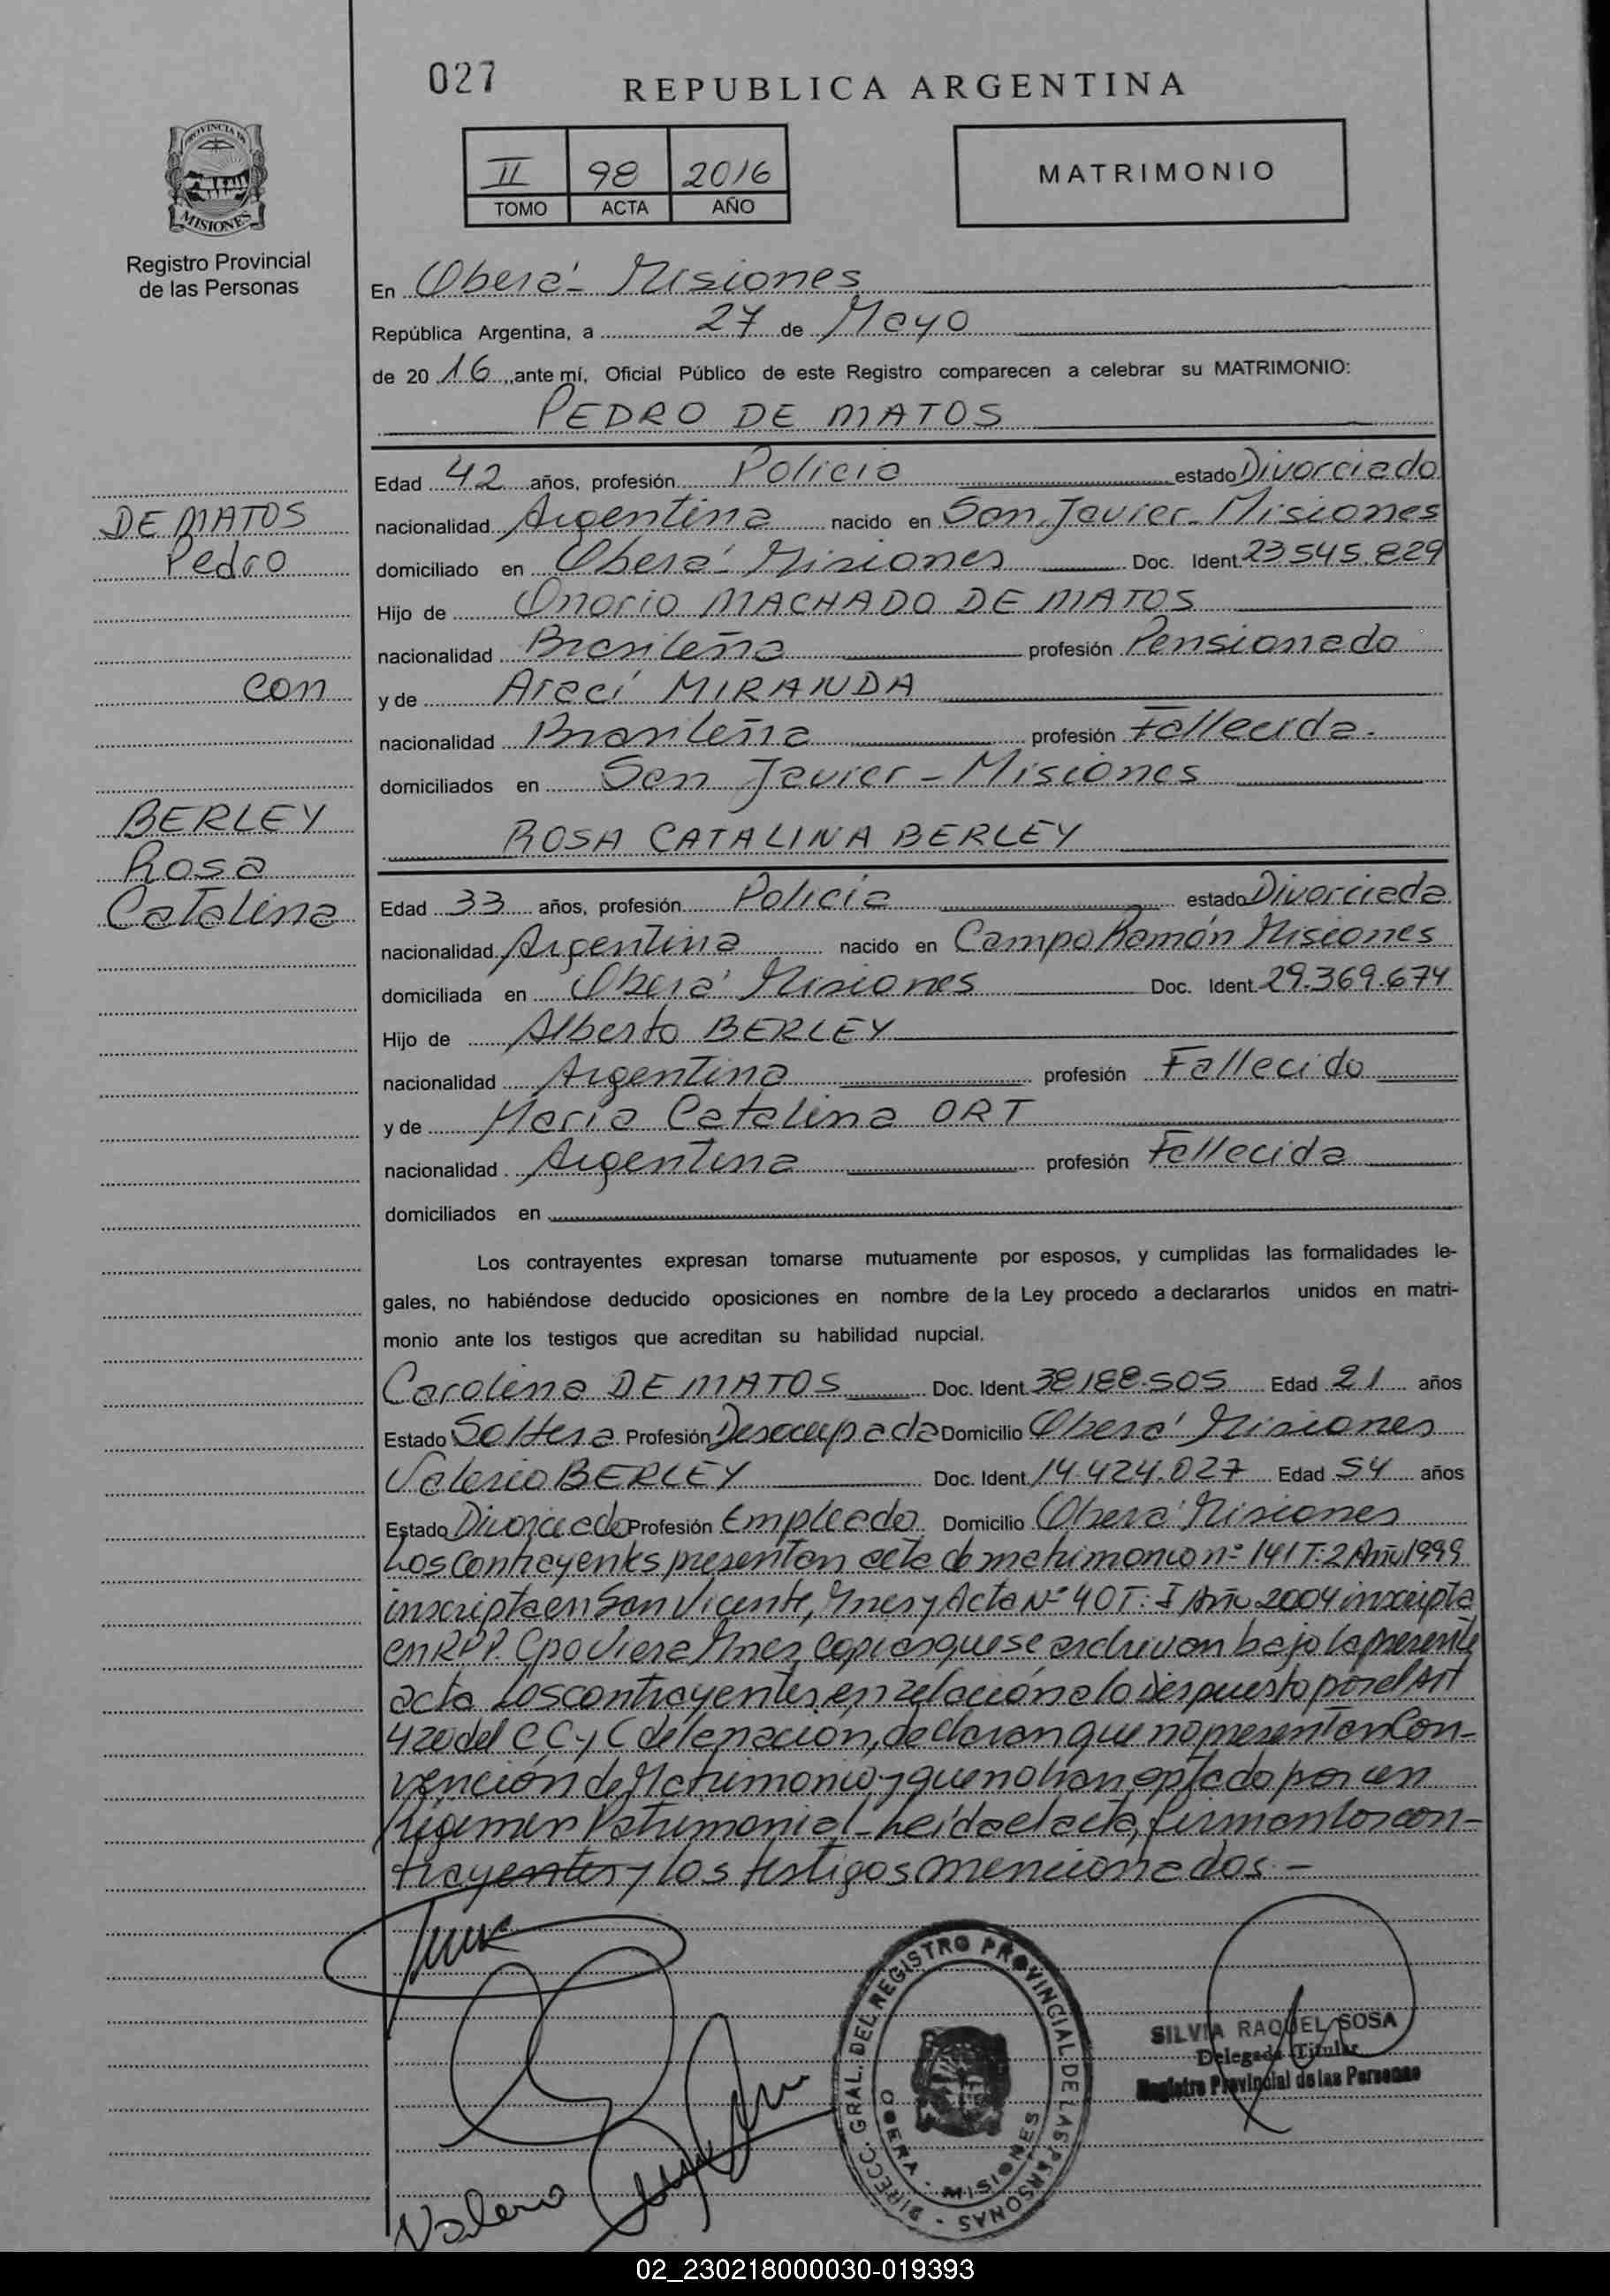 027
REPUBLICA ARGENTINA
II 98 2016
TOMO ACTA AÑO
MATRIMONIO
PROVINCIA DE
MISIONES
Registro Provincial
de las Personas
En Oberá - Misiones
República Argentina, a 27 de Mayo
de 20 16, ante mí, Oficial Público de este Registro comparecen a celebrar su MATRIMONIO:
PEDRO DE MATOS
Edad 42 años, profesión Policia estado Divorciado
nacionalidad Argentina nacido en San Javier - Misiones
domiciliado en Oberá - Misiones Doc. Ident. 23.545.829
Hijo de Onorio MACHADO DE MATOS
nacionalidad Brasileña profesión Pensionado
y de Araci MIRANDA
nacionalidad Brasileña profesión Fallecida.
domiciliados en San Javier - Misiones
DE MATOS
Pedro
con
BERLEY
Rosa
Catalina
ROSA CATALINA BERLEY
Edad 33 años, profesión Policía estado Divorciada
nacionalidad Argentina nacido en Campo Ramón Misiones
domiciliada en Oberá Misiones Doc. Ident. 29.369.674
Hijo de Alberto BERLEY
nacionalidad Argentina profesión Fallecido
y de Maria Catalina ORT
nacionalidad Argentina profesión Fallecida
domiciliados en
Los contrayentes expresan tomarse mutuamente por esposos, y cumplidas las formalidades le-
gales, no habiéndose deducido oposiciones en nombre de la Ley procedo a declararlos unidos en matri-
monio ante los testigos que acreditan su habilidad nupcial.
Carolina DE MATOS Doc. Ident. 38188.505 Edad 21 años
Estado Soltera Profesión Desocupada Domicilio Oberá Misiones
Valerio BERLEY Doc. Ident. 14.424.027 Edad 54 años
Estado Divorciado Profesión Empleado Domicilio Oberá Misiones
Los contrayentes presentan acta de matrimonio nº 141 T: 2 Año 1999
inscripta en San Vicente, Mnes y Acta Nº 40 T: I Año 2004 inscripta
en RPP. Cpo Viera Mnes, copias que se archivan bajo la presente
acta. Los contrayentes, en relación a lo dispuesto por el Art
420 del C C y C de la nación, declaran que no presentan Con-
vención de Matrimonio y que no han optado por un
Régimen Patrimonial - Leída el acta, firman los con-
trayentes y los testigos mencionados. -
Valerio
DIRECC. GRAL. DEL REGISTRO PROVINCIAL DE LAS PERSONAS
OBERA - MISIONES
SILVIA RAQUEL SOSA
Delegada Titular
Registro Provincial de las Personas
02_230218000030-019393